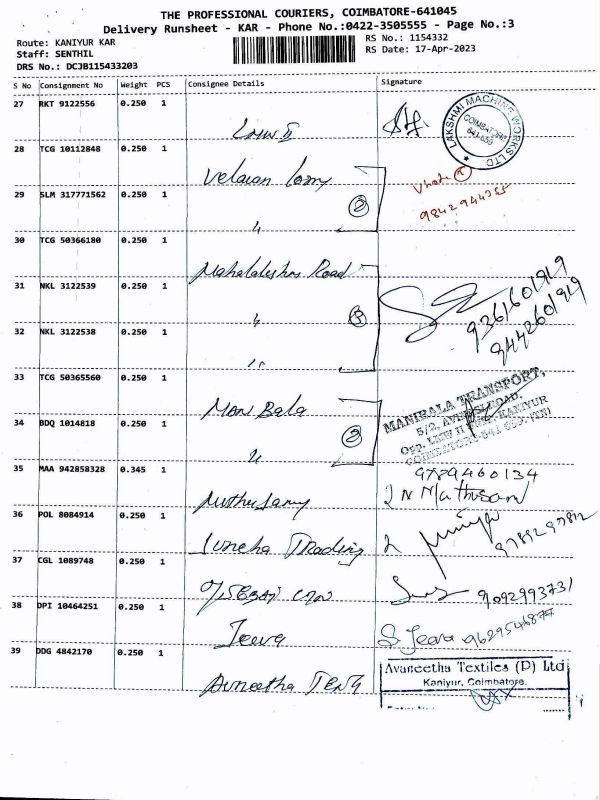 THE PROFESSIONAL COURIERS, COIMBATORE-641045
Delivery Runsheet - KAR - Phone No.:0422-3505555 - Page No.:3
Route: KANIYUR KAR
RS No.: 1154332
Staff: SENTHIL
RS Date: 17-Apr-2023
DRS No.: DCJB115433203
S No Consignment No Weight PCS Consignee Details Signature
27 RKT 9122556 0.250 1
LMW II
LAKSHMI MACHINE WORKS LTD.
COIMBATORE
641-659
28 TCG 10112848 0.250 1
Velavan Lorry
29 SLM 317771562 0.250 1
②
9842944355
〃
30 TCG 50366180 0.250 1
Road
31 NKL 3122539 0.250 1
9361601919
9442601919
〃
32 NKL 3122538 0.250 1
〃
33 TCG 50365560 0.250 1
Mani Bala
MANIBALA TRANSPORT,
34 BDQ 1014818 0.250 1
②
〃
35 MAA 942858328 0.345 1
9789460134
Muthusamy
36 POL 8084914 0.250 1
Suneha Trading
37 CGL 1089748 0.250 1
9092993731
38 DPI 10464251 0.250 1
Jeeva
S Jeeva 9629546877
39 DDG 4842170 0.250 1
Avaneetha Textiles (P) Ltd
Kaniyur, Coimbatore.
Avneetha Tex